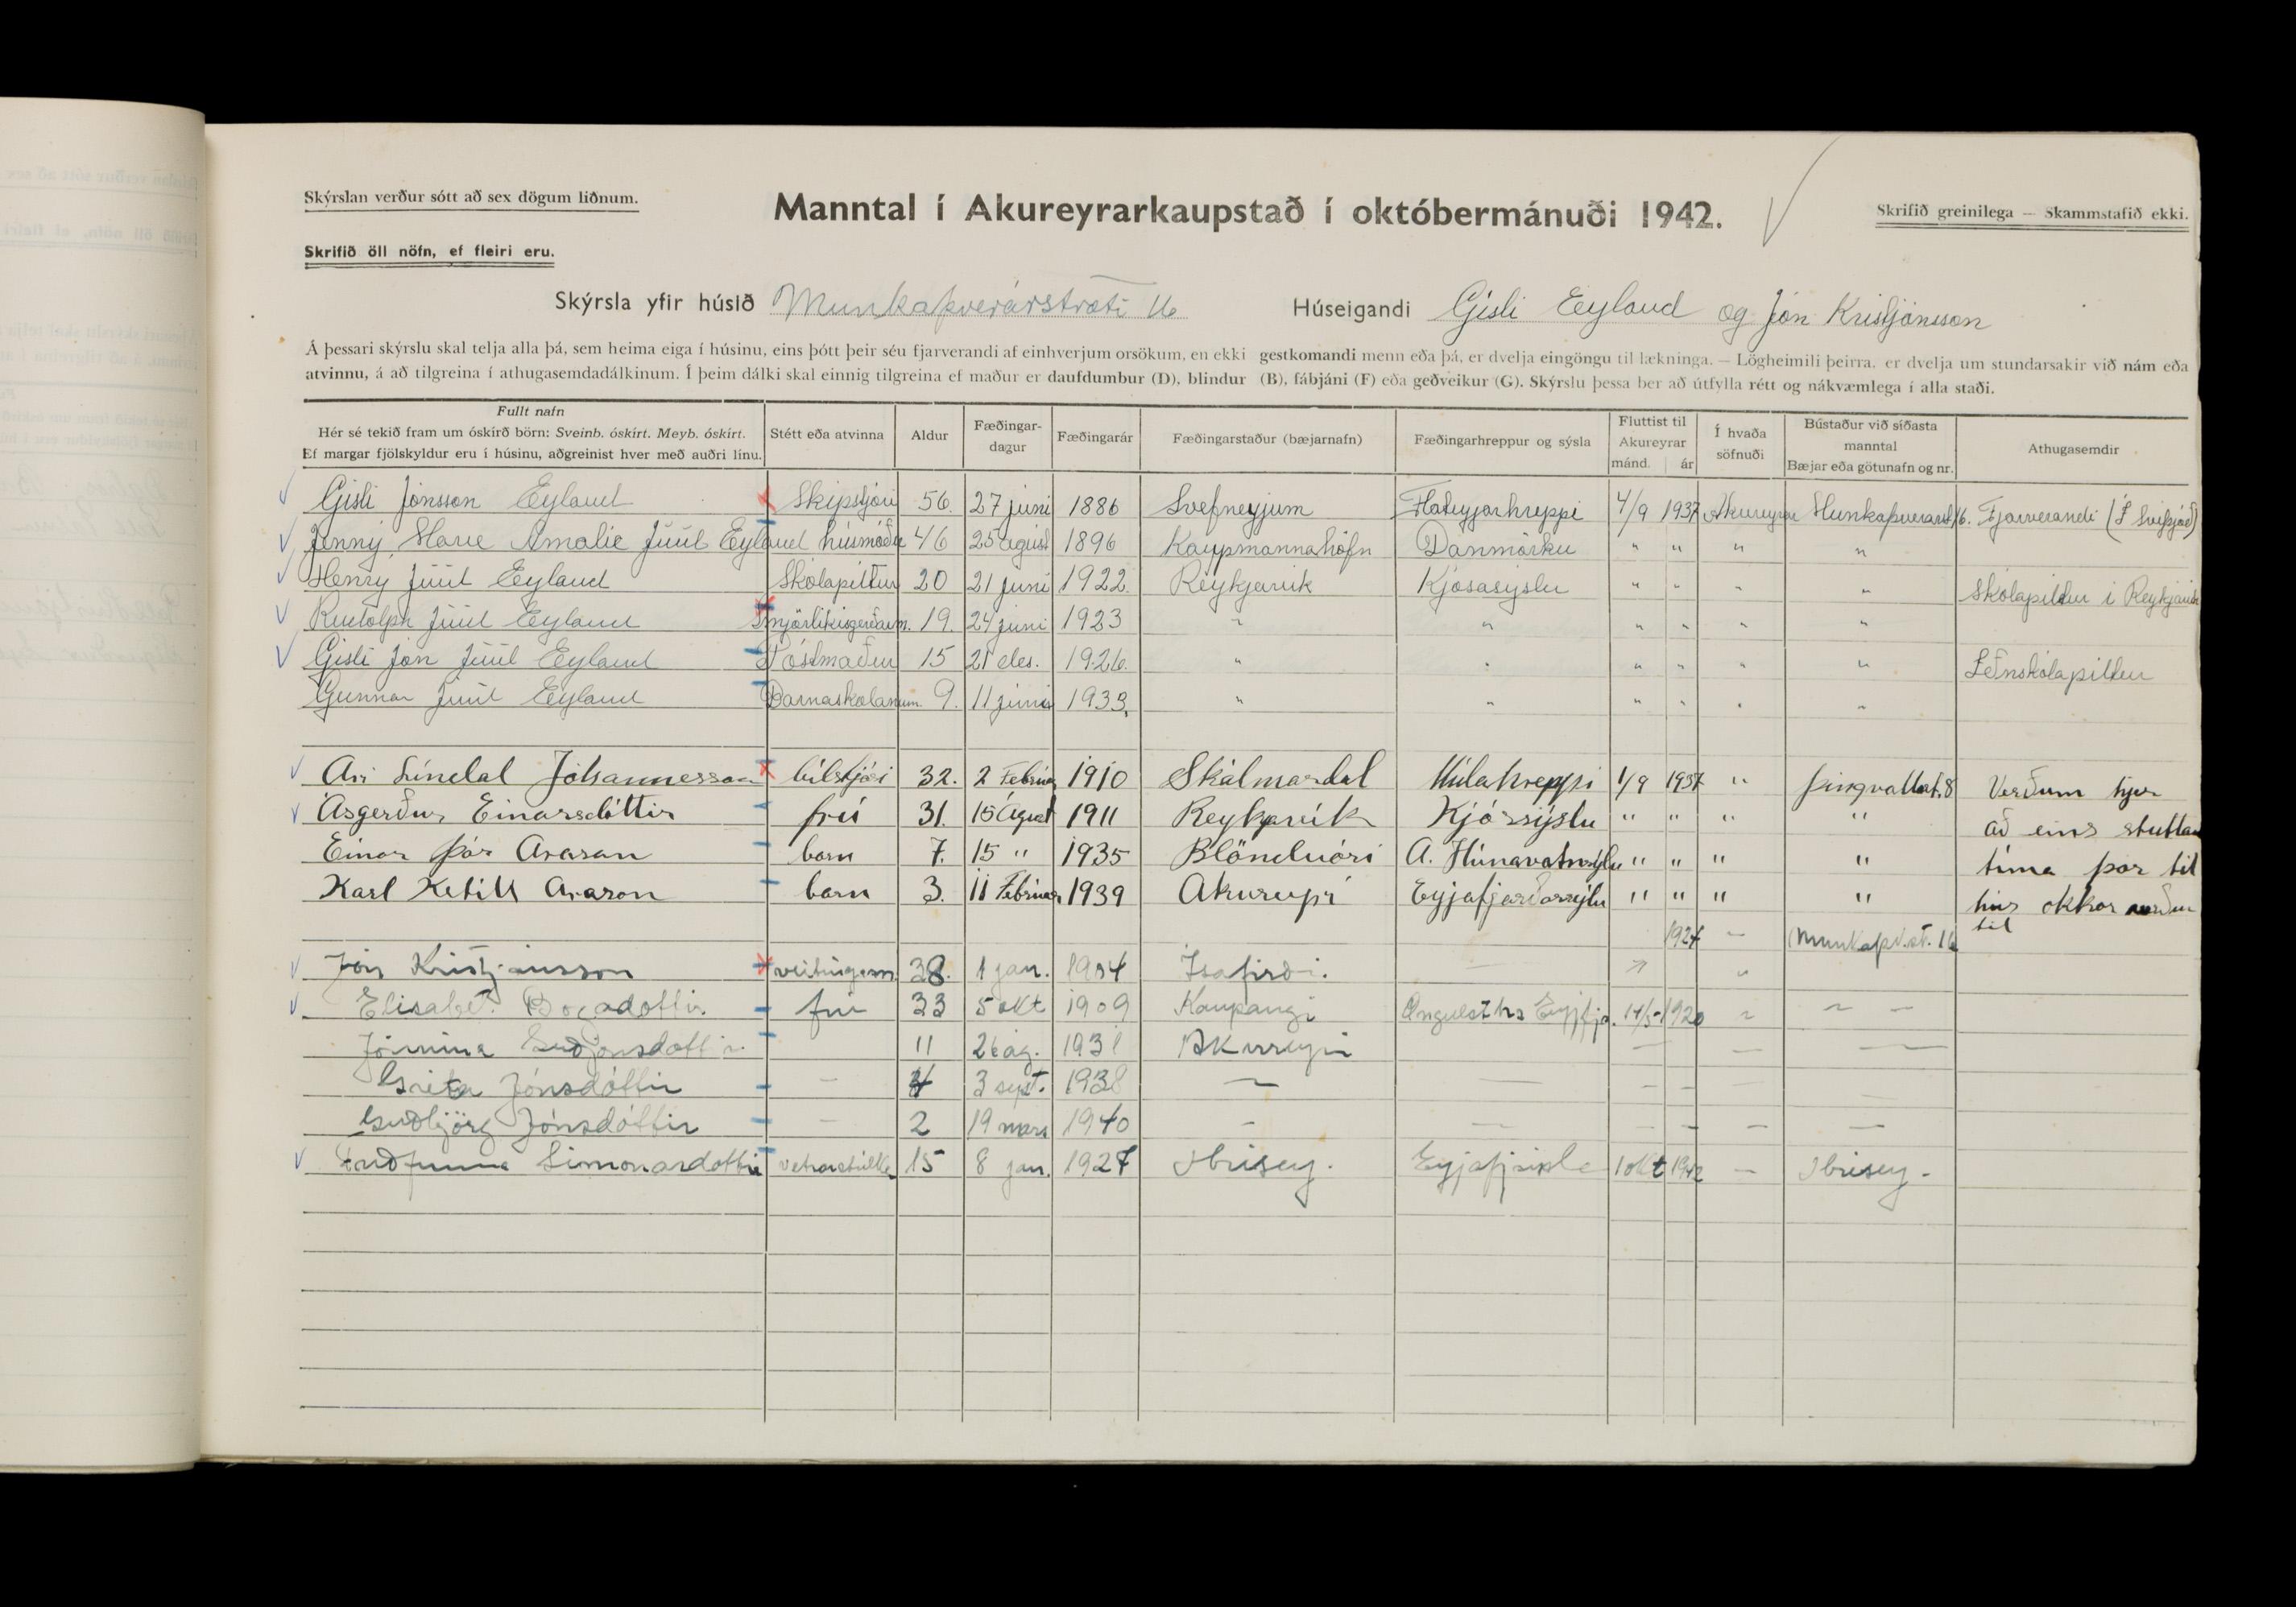 Skýrslan verður sótt að sex dögum liðnum.
Manntal í Akureyrarkaupstað í októbermánuði 1942.
Skrifið greinilega — Skammstafið ekki.
Skrifið öll nöfn, ef fleiri eru.
Skýrsla yfir húsið Munkaþverárstræti 16 Húseigandi Gísli Eyland og Jón Kristjánsson
Á þessari skýrslu skal telja alla þá, sem heima eiga í húsinu, eins þótt þeir séu fjarverandi af einhverjum orsökum, en ekki gestkomandi menn eða þá, er dvelja eingöngu til lækninga. — Lögheimili þeirra, er dvelja um stundarsakir við nám eða
atvinnu, á að tilgreina í athugasemdadálkinum. Í þeim dálki skal einnig tilgreina ef maður er daufdumbur (D), blindur (B), fábjáni (F) eða geðveikur (G). Skýrslu þessa ber að útfylla rétt og nákvæmlega í alla staði.
Fullt nafn
Hér sé tekið fram um óskírð börn: Sveinb. óskírt. Meyb. óskírt.
Ef margar fjölskyldur eru í húsinu, aðgreinist hver með auðri línu.
Stétt eða atvinna
Aldur
Fæðingar-
dagur
Fæðingarár
Fæðingarstaður (bæjarnafn)
Fæðingarhreppur og sýsla
Fluttist til
Akureyrar
mánd. ár
Í hvaða
söfnuði
Bústaður við síðasta
manntal
Bæjar eða götunafn og nr.
Athugasemdir
Gísli Jónsson Eyland Skipstjóri 56. 27 júní 1886 Svefneyjum Flateyjarhreppi 4/9 1937 Akureyrar Munkaþverárst 16. Fjarverandi (Í Svíþjóð)
Jenny Marie Amalie Júúl Eyland húsmóðir 46 25 ágúst 1896 Kaupmannahöfn Danmörku " " " "
Henry Júúl Eyland Skólapiltur 20 21 júní 1922. Reykjavík Kjósasýslu " " " " Skólapiltur í Reykjavík
Rudolph Júúl Eyland Smjörlíkisgerðarm. 19. 24 júní 1923 " " " " " "
Gísli Jón Júúl Eyland Póstmaður 15 21 des. 1926. " " " " " " Iðnskólapiltur
Gunnar Júúl Eyland Barnaskólanum. 9. 11 júní 1933. " " " " " "
Ari Líndal Jóhannesson bílstjóri 32. 2 Febrúar 1910 Skálmardal Múlahreppi 1/9 1937 " Þingvallast. 8 Verðum hjer
Ásgerður Einarsdóttir frú 31. 15 Ágúst 1911 Reykjavík Kjóssýslu " " " " að eins stuttan
Einar Þór Arason barn 7. 15 " 1935 Blönduósi A. Húnavatnssýslu " " " " tíma þar til
Karl Ketill Arason barn 3. 11 Febrúar 1939 Akureyri Eyjafjarðarsýslu " " " " hús okkar verður
til
1927 — Munkaþv.st. 16
Jón Kristjánsson veitingam. 38. 1 jan. 1904 Ísafirði. — "
Elísabet Bogadóttir frú 33 5 okt 1909 Kaupangi Öngulst.hr. Eyjafj. 14/5 1920 " — —
Jónína Guðjónsdóttir 11 26 ág. 1931 Akureyri — — —
Gréta Jónsdóttir — 4 3 sept. 1938 — — — —
Guðbjörg Jónsdóttir — 2 19 mars 1940 — — — — — —
Símonardóttir vetrarstúlka 15 8 jan. 1927 Hrísey. Eyjafj.sýsla 1 okt 1942 — Hrísey -